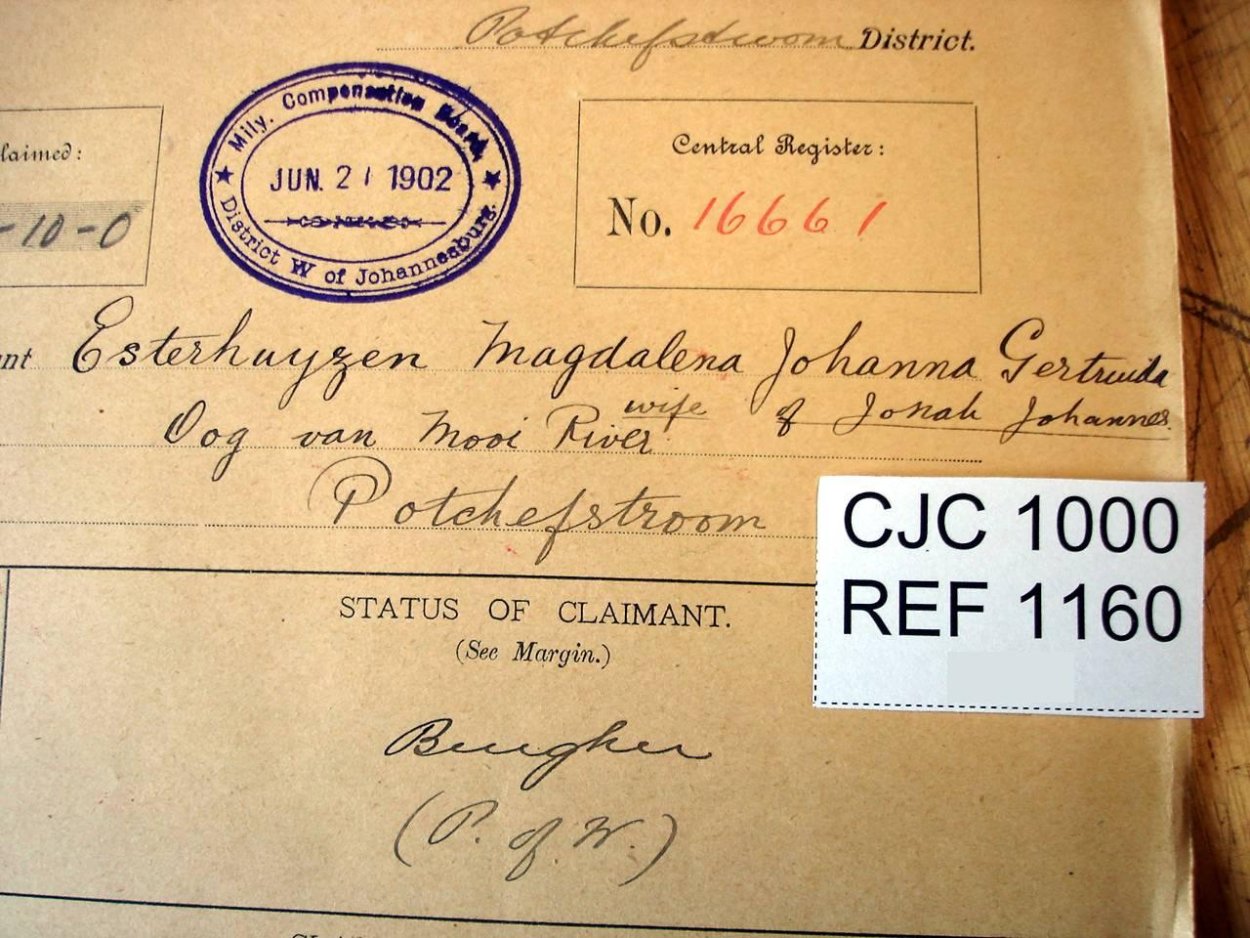 Potchefstroom District.
laimed:
-10-0
Mily. Compensation Board,
JUN. 21 1902
District W of Johannesburg.
Central Register:
No. 16661
nt Esterhuyzen Magdalena Johanna Gertruida
wife of Jonah Johannes
Oog van Mooi River
Potchefstroom
CJC 1000
REF 1160
STATUS OF CLAIMANT.
(See Margin.)
Burgher
(P. of W.)